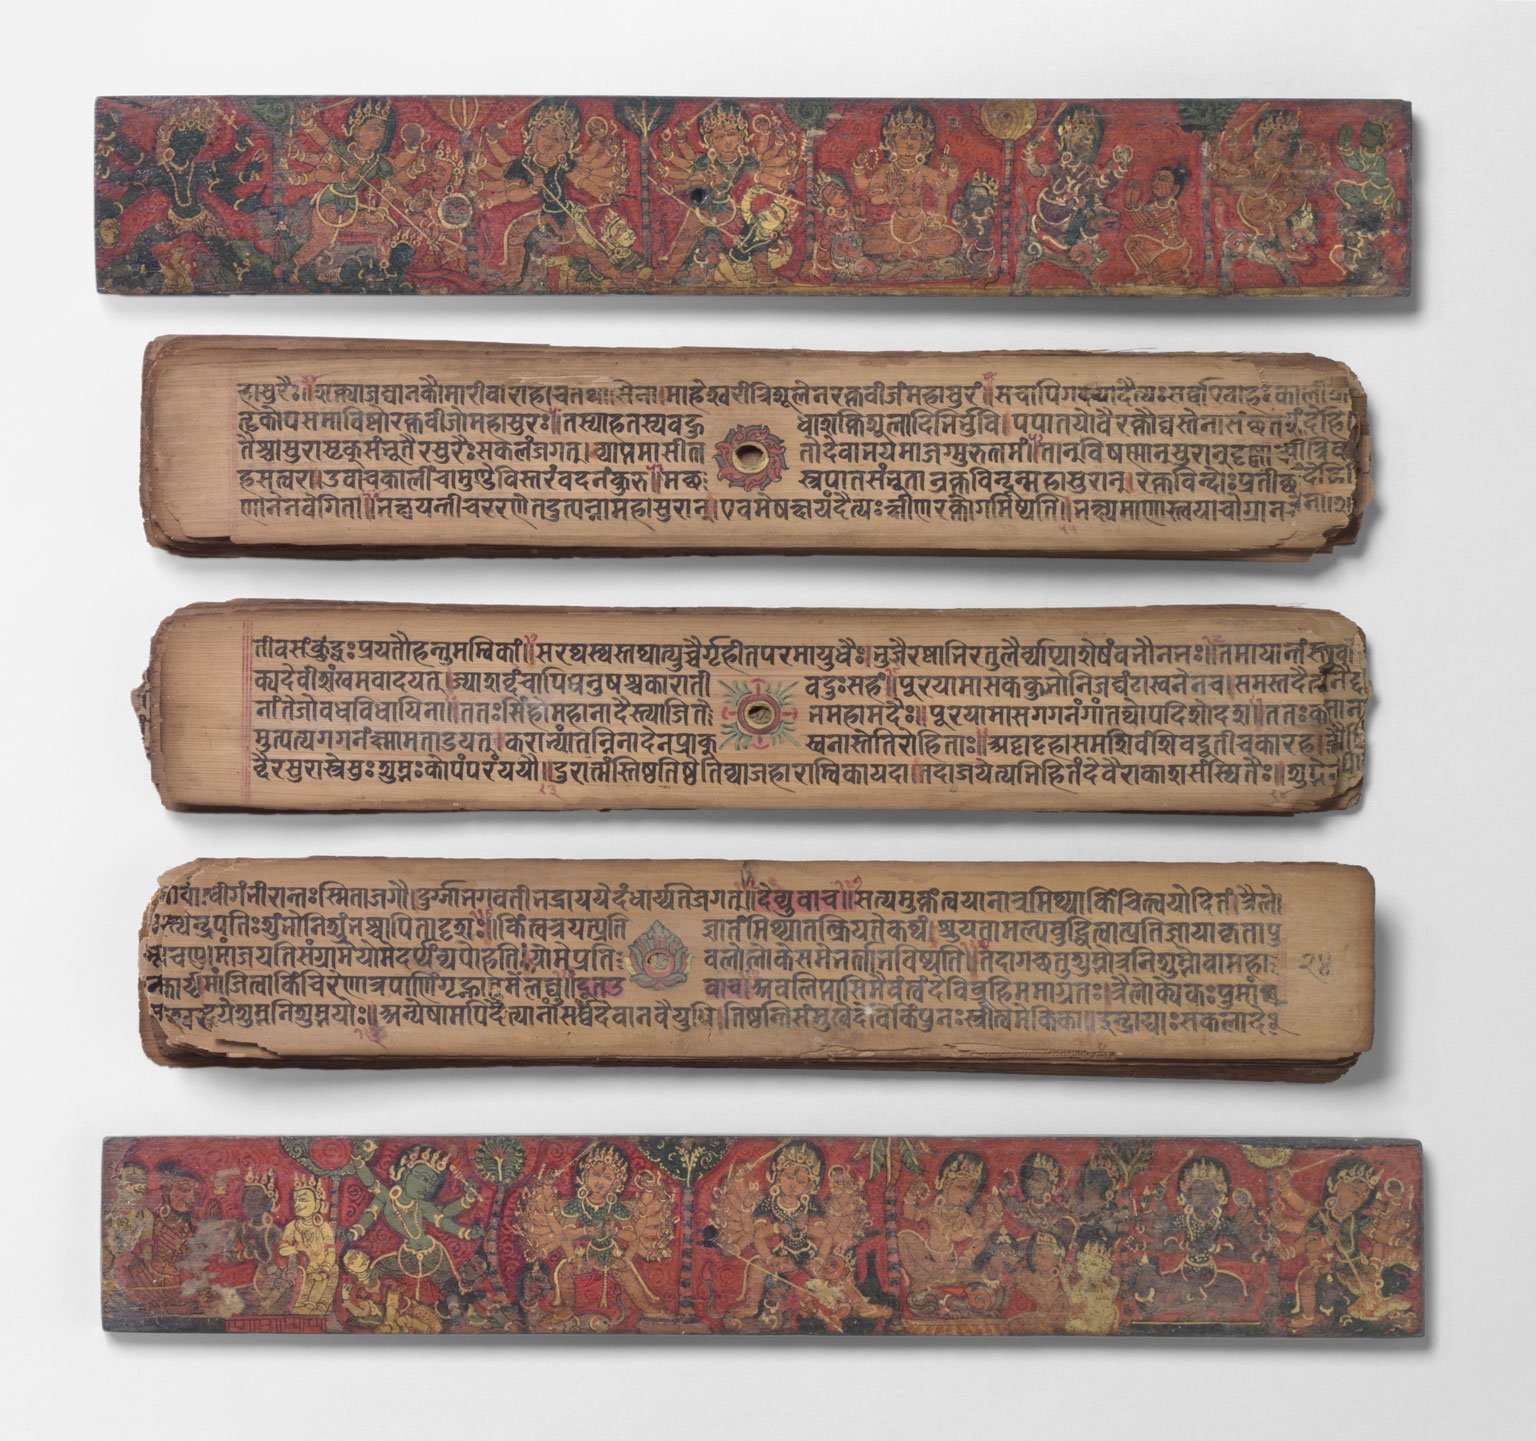 हासुरैः॥शक्त्याजघानकौमारीवाराहीचतथासिना।माहेश्वरीत्रिशूलेनरक्तवीजंमहासुरं॥सचापिगदयादैत्यःसर्वाएवाह
तृकोपसमाविष्टोरक्तवीजोमहासुरः॥तस्याहतस्यवहुधाशक्तिशूलादिभिर्भुवि।पपातयोवैरक्तौघस्तेनासं
तैश्चासुरासृक्संभूतैरसुरैःसकलंजगत्।व्याप्तमासीत्ततोदेवाभयमाजग्मुरुत्तमां॥तान्विषण्णान्सुरान्दृष्ट्वा
हसत्वरा।उवाचकालींचामुण्डेविस्तरंवदनंकुरु॥मच्छस्त्रपातसंभूतान्रक्तविन्दून्महासुरान्।रक्तविन्दोःप्रतीच्छ
णानेनवेगिता॥भक्षयन्तीचररणेतदुत्पन्नान्महासुरान्।एवमेषक्षयंदैत्यःक्षीणरक्तोगमिष्यति॥भक्ष्यमाणास्त्वयाचोग्रान
तीवसंक्रुद्धःप्रययौहन्तुमम्बिकां॥सरथस्थस्तथात्युच्चैर्गृहीतपरमायुधैः।भुजैरष्टाभिरतुलैर्व्याप्याशेषंवभौनभः॥तमायान्तं
क्यदेवीशंखमवादयत्।ज्याशब्दंचापिधनुषश्चकारातीवदुःसहं॥पूरयामासककुभोनिजघंटास्वनेनच।समस्तदैत्य
नांतेजोवधविधायिना॥ततःसिंहोमहानादैस्त्याजितेभमहामदैः॥पूरयामासगगनंगांतथोपदिशोदश॥ततःका
मुत्पत्यगगनंक्ष्मामताडयत्।कराभ्यांतन्निनादेनप्राक्स्वनास्तेतिरोहिताः॥अट्टाट्टहासमशिवंशिवदूतीचकारह
ब्दैरसुरास्त्रेसुःशुम्भःकोपंपरंययौ॥दुरात्मंस्तिष्ठतिष्ठेतिव्याजहाराम्बिकायदा।तदाजयेत्यभिहितंदेवैराकाशसंस्थितैः॥
गंभीरान्तःस्मिताजगौ।दुर्गाभगवतीभद्राययेदंधार्यतेजगत्॥देव्युवाच॥सत्यमुक्तंत्वयानात्रमिथ्याकिंचित्त्वयोदितं।त्रैलो
पतिःशुंभोनिशुंभश्चापितादृशः॥किंत्वत्रयत्प्रतिज्ञातंमिथ्यातत्क्रियतेकथं।श्रूयतामल्पबुद्धित्वात्प्रतिज्ञायाकृतापु
मांजयतिसंग्रामेयोमेदर्पंव्यपोहति।योमेप्रतिवलोलोकेसमेभर्ताभविष्यति॥तदागच्छतुशुम्भोत्रनिशुम्भोवामहा
मांजित्वाकिंचिरेणात्रपाणिंगृह्णातुमेलघु॥दूतउवाच॥अवलिप्तासिमैवंत्वंदेविब्रूहिममाग्रतः।त्रैलोक्येकःपुमां
शुम्भनिशुम्भयोः॥अन्येषामपिदैत्यानांसर्वेदेवानवैयुधि।तिष्ठन्तिसंमुखेदेविकिंपुनःस्त्रीत्वमेकिका॥इन्द्राद्याःसकलादे
२४